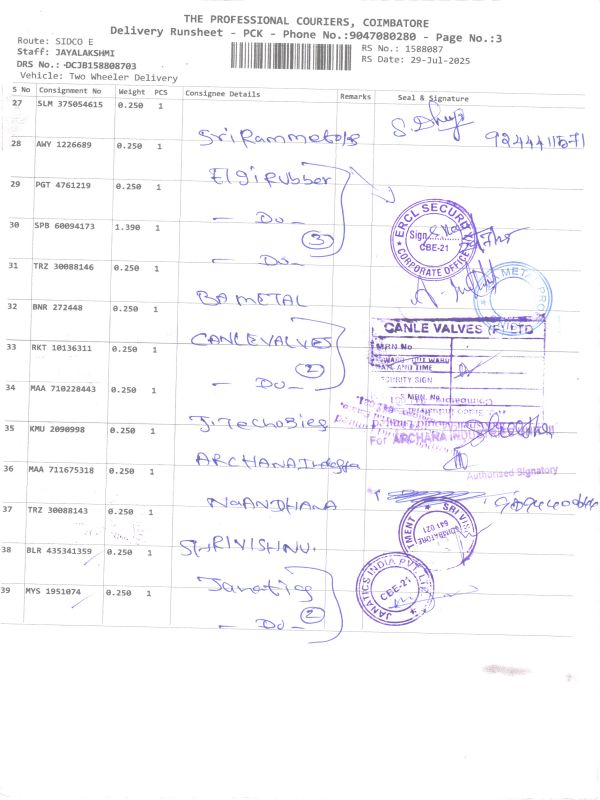 THE PROFESSIONAL COURIERS, COIMBATORE
Delivery Runsheet - PCK - Phone No.:9047080280 - Page No.:3
Route: SIDCO E
RS No.: 1588087
Staff: JAYALAKSHMI
RS Date: 29-Jul-2025
DRS No.: DCJB158808703
Vehicle: Two Wheeler Delivery
S No Consignment No Weight PCS Consignee Details Remarks Seal & Signature
27 SLM 375054615 0.250 1
Sri Rammetals
28 AWY 1226689 0.250 1
Elgi rubber
29 PGT 4761219 0.250 1
— Do —
3
30 SPB 60094173 1.390 1
— Do —
ERCL SECURITY
Sign
CBE-21
* CORPORATE OFFICE *
31 TRZ 30088146 0.250 1
BA METAL
32 BNR 272448 0.250 1
CANLE VALVES
CANLE VALVES (P) LTD
MRN No
33 RKT 10136311 0.250 1
— Do —
2
DATE AND TIME
SECURITY SIGN
34 MAA 710228443 0.250 1
35 KMU 2090998 0.250 1
ARCHANA
For ARCHANA
Authorised Signatory
36 MAA 711675318 0.250 1
37 TRZ 30088143 0.250 1
SHRIVISHNU
SRI VI
641 021
38 BLR 435341359 0.250 1
Janatics
2
39 MYS 1951074 0.250 1
— Do —
JANATICS INDIA PVT. LTD.
CBE-21